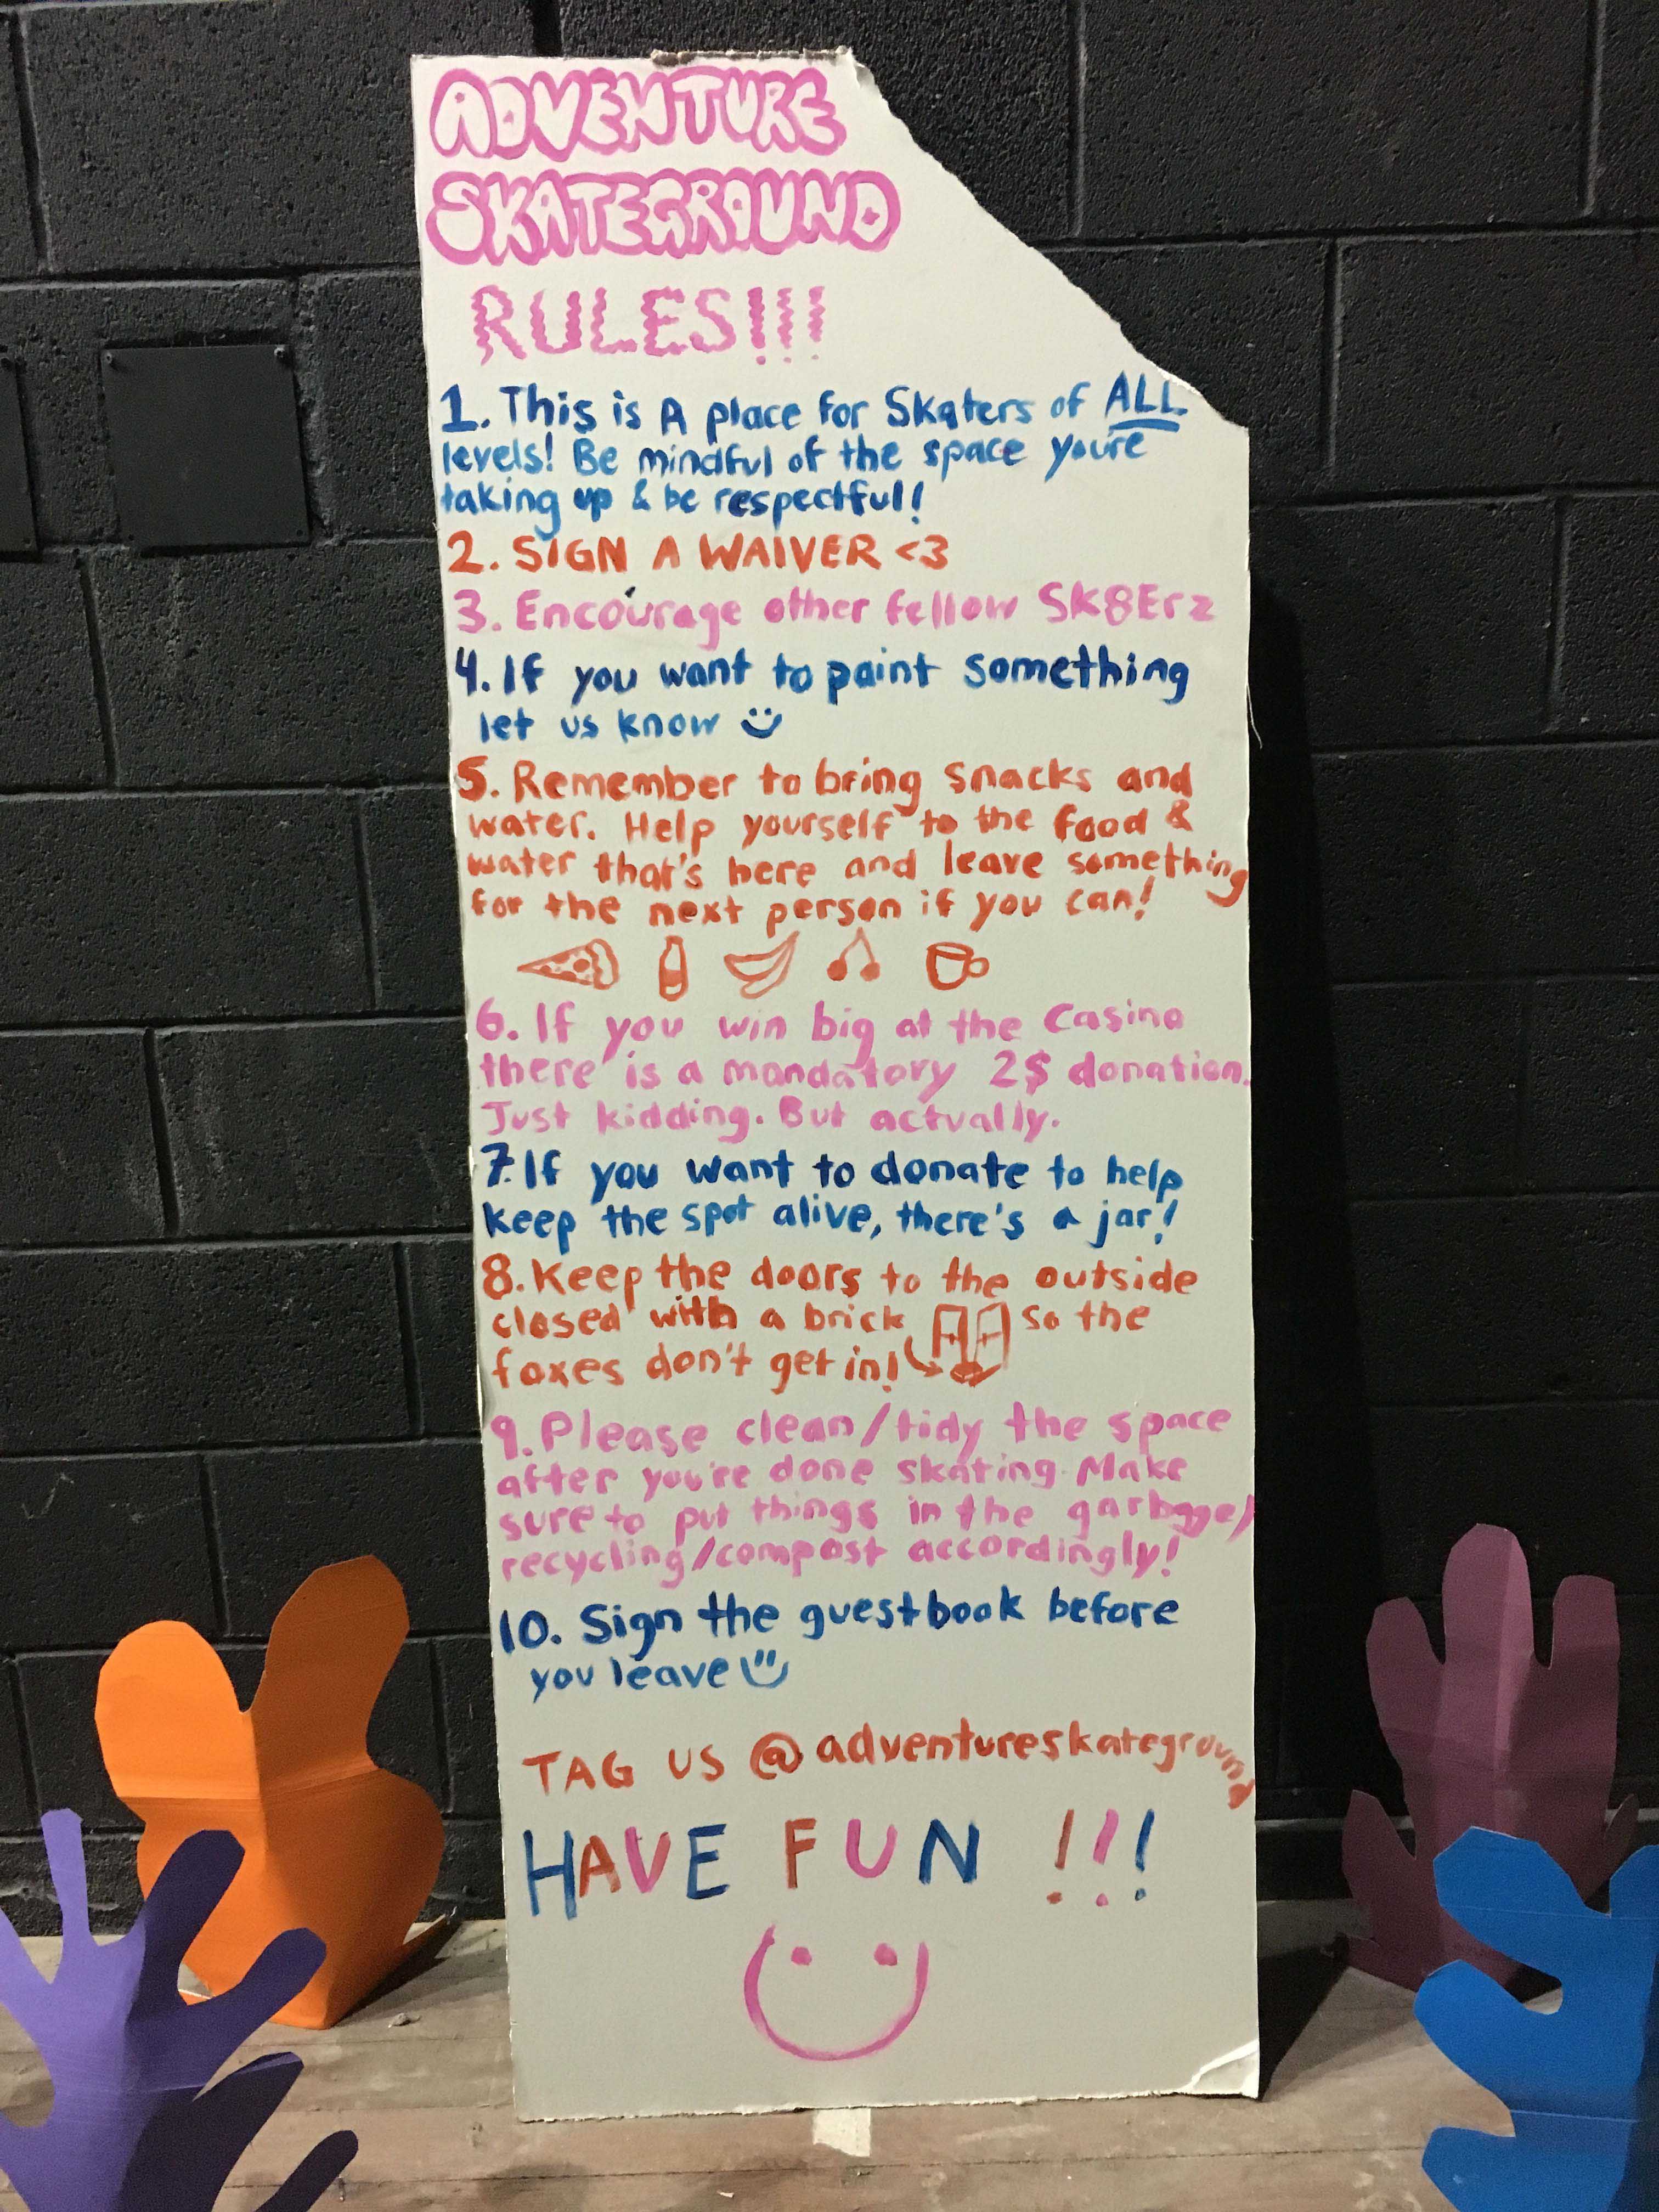 ADVENTURE
SKATEGROUND
RULES!!!
1. This is A place for Skaters of ALL
levels! Be mindful of the space you're
taking up & be respectful!
2. SIGN A WAIVER <3
3. Encourage other fellow SK8Erz
4. If you want to paint something
let us know :)
5. Remember to bring snacks and
water. Help yourself to the food &
water that's here and leave something
for the next person if you can!
6. If you win big at the Casino
there is a mandatory 2$ donation.
Just kidding. But actually.
7. If you want to donate to help
keep the spot alive, there's a jar!
8. Keep the doors to the outside
closed with a brick so the
foxes don't get in!
9. Please clean/tidy the space
after you're done skating. Make
sure to put things in the garbage/
recycling/compost accordingly!
10. Sign the guestbook before
you leave :)
TAG US @adventureskateground
HAVE FUN !!!